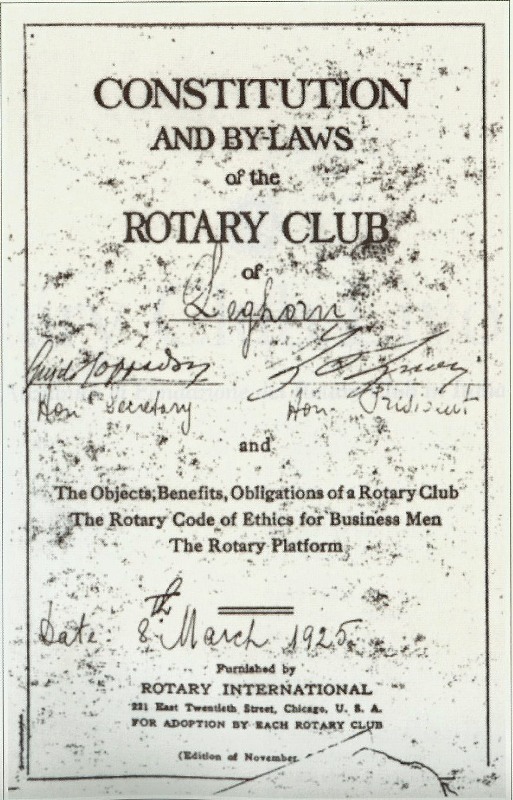 CONSTITUTION
AND BY-LAWS
of the
ROTARY CLUB
of
Leghorn
Hon Secretary Hon President
and
The Objects, Benefits, Obligations of a Rotary Club
The Rotary Code of Ethics for Business Men
The Rotary Platform
Date. 8th March 1925
Furnished by
ROTARY INTERNATIONAL
221 East Twentieth Street, Chicago, U. S. A.
FOR ADOPTION BY EACH ROTARY CLUB
(Edition of November